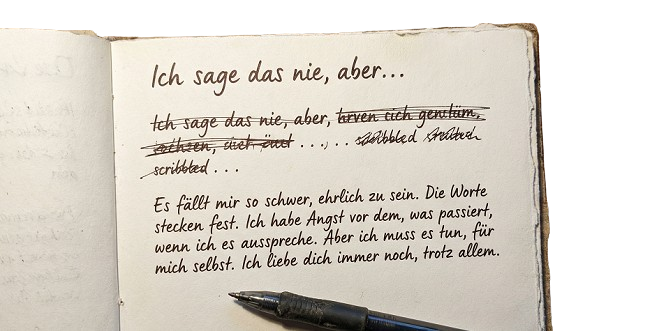 Ich sage das nie, aber...
Ich sage das nie, aber,
. . . , . . scribbled
scribbled . . .
Es fällt mir so schwer, ehrlich zu sein. Die Worte
stecken fest. Ich habe Angst vor dem, was passiert,
wenn ich es ausspreche. Aber ich muss es tun, für
mich selbst. Ich liebe dich immer noch, trotz allem.